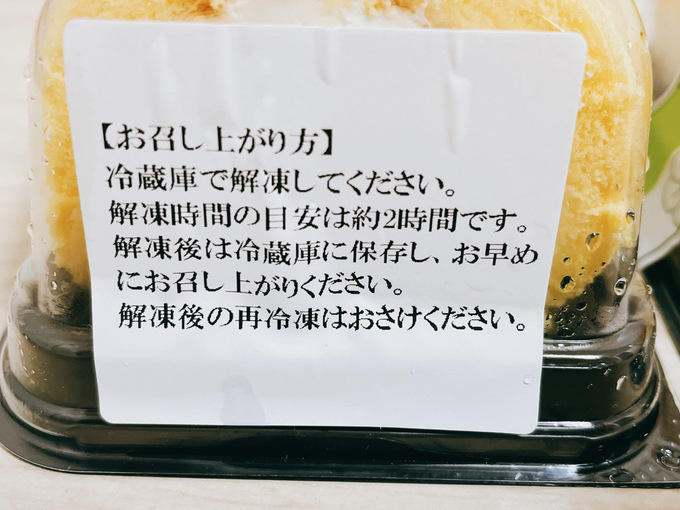 【お召し上がり方】
冷蔵庫で解凍してください。
解凍時間の目安は約2時間です。
解凍後は冷蔵庫に保存し、お早め
にお召し上がりください。
解凍後の再冷凍はおさけください。